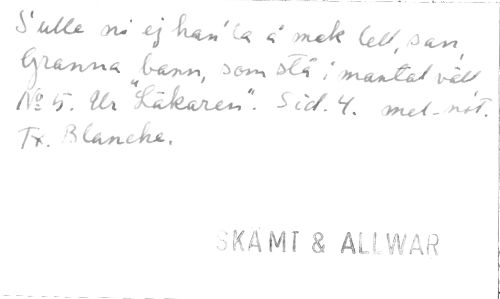 S'ulle ni ej han'la å mek lell, san,
Granna bann, som stå i mantat väll
No 5. Ur "Läkaren". Sid. 4. mel-not.
Tx. Blanche.
SKÄMT & ALLWAR